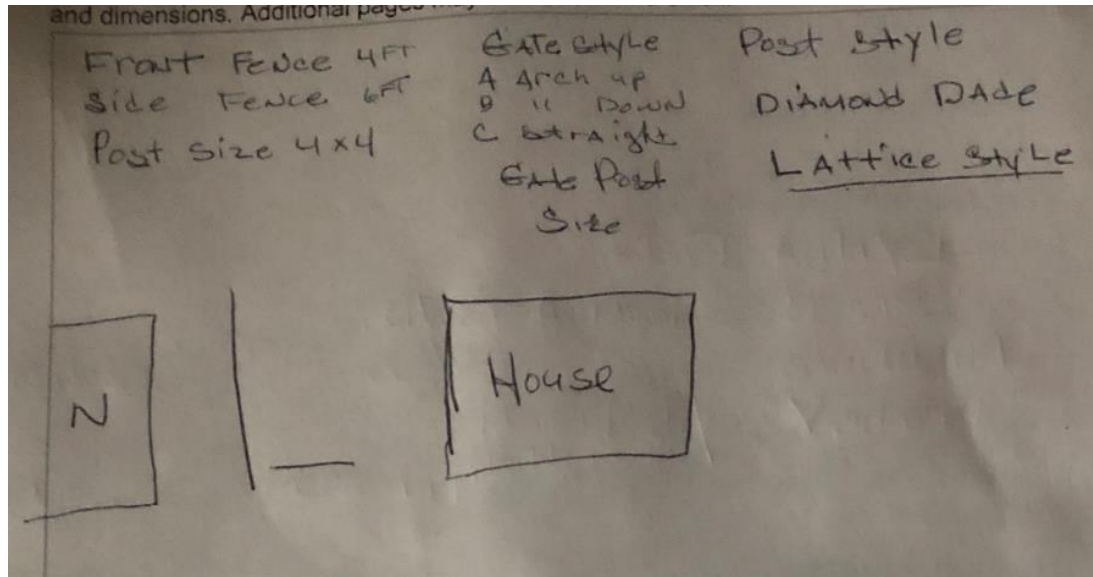 and dimensions. Additional pages may
Front Fence 4FT
Side Fence 6FT
Post Size 4x4
GATe Style
A Arch up
B " Down
C straight
GAte Post
Size
Post Style
DiAMond DAde
LAttice StyLe
N
House